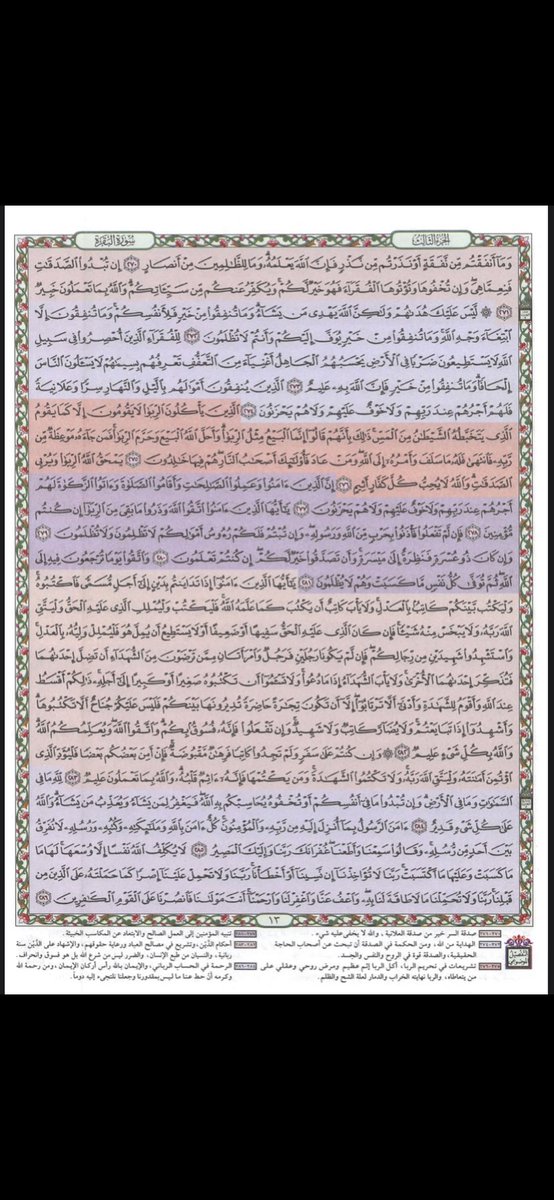 الجزء الثالث
سورة البقرة
وَمَا أَنفَقْتُم مِّن نَّفَقَةٍ أَوْ نَذَرْتُم مِّن نَّذْرٍ فَإِنَّ اللَّهَ يَعْلَمُهُ وَمَا لِلظَّالِمِينَ مِنْ أَنصَارٍ ﴿٢٧٠﴾ إِن تُبْدُوا الصَّدَقَاتِ
فَنِعِمَّا هِيَ وَإِن تُخْفُوهَا وَتُؤْتُوهَا الْفُقَرَاءَ فَهُوَ خَيْرٌ لَّكُمْ وَيُكَفِّرُ عَنكُم مِّن سَيِّئَاتِكُمْ وَاللَّهُ بِمَا تَعْمَلُونَ خَبِيرٌ
﴿٢٧١﴾ ۞ لَّيْسَ عَلَيْكَ هُدَاهُمْ وَلَٰكِنَّ اللَّهَ يَهْدِي مَن يَشَاءُ وَمَا تُنفِقُوا مِنْ خَيْرٍ فَلِأَنفُسِكُمْ وَمَا تُنفِقُونَ إِلَّا
ابْتِغَاءَ وَجْهِ اللَّهِ وَمَا تُنفِقُوا مِنْ خَيْرٍ يُوَفَّ إِلَيْكُمْ وَأَنتُمْ لَا تُظْلَمُونَ ﴿٢٧٢﴾ لِلْفُقَرَاءِ الَّذِينَ أُحْصِرُوا فِي سَبِيلِ
اللَّهِ لَا يَسْتَطِيعُونَ ضَرْبًا فِي الْأَرْضِ يَحْسَبُهُمُ الْجَاهِلُ أَغْنِيَاءَ مِنَ التَّعَفُّفِ تَعْرِفُهُم بِسِيمَاهُمْ لَا يَسْأَلُونَ النَّاسَ
إِلْحَافًا وَمَا تُنفِقُوا مِنْ خَيْرٍ فَإِنَّ اللَّهَ بِهِ عَلِيمٌ ﴿٢٧٣﴾ الَّذِينَ يُنفِقُونَ أَمْوَالَهُم بِاللَّيْلِ وَالنَّهَارِ سِرًّا وَعَلَانِيَةً
فَلَهُمْ أَجْرُهُمْ عِندَ رَبِّهِمْ وَلَا خَوْفٌ عَلَيْهِمْ وَلَا هُمْ يَحْزَنُونَ ﴿٢٧٤﴾ الَّذِينَ يَأْكُلُونَ الرِّبَوٰا لَا يَقُومُونَ إِلَّا كَمَا يَقُومُ
الَّذِي يَتَخَبَّطُهُ الشَّيْطَانُ مِنَ الْمَسِّ ذَٰلِكَ بِأَنَّهُمْ قَالُوا إِنَّمَا الْبَيْعُ مِثْلُ الرِّبَوٰا وَأَحَلَّ اللَّهُ الْبَيْعَ وَحَرَّمَ الرِّبَوٰا فَمَن جَاءَهُ مَوْعِظَةٌ مِّن
رَّبِّهِ فَانتَهَىٰ فَلَهُ مَا سَلَفَ وَأَمْرُهُ إِلَى اللَّهِ وَمَنْ عَادَ فَأُولَٰئِكَ أَصْحَابُ النَّارِ هُمْ فِيهَا خَالِدُونَ ﴿٢٧٥﴾ يَمْحَقُ اللَّهُ الرِّبَوٰا وَيُرْبِي
الصَّدَقَاتِ وَاللَّهُ لَا يُحِبُّ كُلَّ كَفَّارٍ أَثِيمٍ ﴿٢٧٦﴾ إِنَّ الَّذِينَ ءَامَنُوا وَعَمِلُوا الصَّالِحَاتِ وَأَقَامُوا الصَّلَوٰةَ وَءَاتَوُا الزَّكَوٰةَ لَهُمْ
أَجْرُهُمْ عِندَ رَبِّهِمْ وَلَا خَوْفٌ عَلَيْهِمْ وَلَا هُمْ يَحْزَنُونَ ﴿٢٧٧﴾ يَا أَيُّهَا الَّذِينَ ءَامَنُوا اتَّقُوا اللَّهَ وَذَرُوا مَا بَقِيَ مِنَ الرِّبَوٰا إِن كُنتُم
مُّؤْمِنِينَ ﴿٢٧٨﴾ فَإِن لَّمْ تَفْعَلُوا فَأْذَنُوا بِحَرْبٍ مِّنَ اللَّهِ وَرَسُولِهِ وَإِن تُبْتُمْ فَلَكُمْ رُءُوسُ أَمْوَالِكُمْ لَا تَظْلِمُونَ وَلَا تُظْلَمُونَ ﴿٢٧٩﴾
وَإِن كَانَ ذُو عُسْرَةٍ فَنَظِرَةٌ إِلَىٰ مَيْسَرَةٍ وَأَن تَصَدَّقُوا خَيْرٌ لَّكُمْ إِن كُنتُمْ تَعْلَمُونَ ﴿٢٨٠﴾ وَاتَّقُوا يَوْمًا تُرْجَعُونَ فِيهِ إِلَى
اللَّهِ ثُمَّ تُوَفَّىٰ كُلُّ نَفْسٍ مَّا كَسَبَتْ وَهُمْ لَا يُظْلَمُونَ ﴿٢٨١﴾ يَا أَيُّهَا الَّذِينَ ءَامَنُوا إِذَا تَدَايَنتُم بِدَيْنٍ إِلَىٰ أَجَلٍ مُّسَمًّى فَاكْتُبُوهُ
وَلْيَكْتُب بَّيْنَكُمْ كَاتِبٌ بِالْعَدْلِ وَلَا يَأْبَ كَاتِبٌ أَن يَكْتُبَ كَمَا عَلَّمَهُ اللَّهُ فَلْيَكْتُبْ وَلْيُمْلِلِ الَّذِي عَلَيْهِ الْحَقُّ وَلْيَتَّقِ
اللَّهَ رَبَّهُ وَلَا يَبْخَسْ مِنْهُ شَيْئًا فَإِن كَانَ الَّذِي عَلَيْهِ الْحَقُّ سَفِيهًا أَوْ ضَعِيفًا أَوْ لَا يَسْتَطِيعُ أَن يُمِلَّ هُوَ فَلْيُمْلِلْ وَلِيُّهُ بِالْعَدْلِ
وَاسْتَشْهِدُوا شَهِيدَيْنِ مِن رِّجَالِكُمْ فَإِن لَّمْ يَكُونَا رَجُلَيْنِ فَرَجُلٌ وَامْرَأَتَانِ مِمَّن تَرْضَوْنَ مِنَ الشُّهَدَاءِ أَن تَضِلَّ إِحْدَاهُمَا
فَتُذَكِّرَ إِحْدَاهُمَا الْأُخْرَىٰ وَلَا يَأْبَ الشُّهَدَاءُ إِذَا مَا دُعُوا وَلَا تَسْأَمُوا أَن تَكْتُبُوهُ صَغِيرًا أَوْ كَبِيرًا إِلَىٰ أَجَلِهِ ذَٰلِكُمْ أَقْسَطُ
عِندَ اللَّهِ وَأَقْوَمُ لِلشَّهَادَةِ وَأَدْنَىٰ أَلَّا تَرْتَابُوا إِلَّا أَن تَكُونَ تِجَارَةً حَاضِرَةً تُدِيرُونَهَا بَيْنَكُمْ فَلَيْسَ عَلَيْكُمْ جُنَاحٌ أَلَّا تَكْتُبُوهَا
وَأَشْهِدُوا إِذَا تَبَايَعْتُمْ وَلَا يُضَارَّ كَاتِبٌ وَلَا شَهِيدٌ وَإِن تَفْعَلُوا فَإِنَّهُ فُسُوقٌ بِكُمْ وَاتَّقُوا اللَّهَ وَيُعَلِّمُكُمُ اللَّهُ
وَاللَّهُ بِكُلِّ شَيْءٍ عَلِيمٌ ﴿٢٨٢﴾ ۞ وَإِن كُنتُمْ عَلَىٰ سَفَرٍ وَلَمْ تَجِدُوا كَاتِبًا فَرِهَانٌ مَّقْبُوضَةٌ فَإِنْ أَمِنَ بَعْضُكُم بَعْضًا فَلْيُؤَدِّ الَّذِي
اؤْتُمِنَ أَمَانَتَهُ وَلْيَتَّقِ اللَّهَ رَبَّهُ وَلَا تَكْتُمُوا الشَّهَادَةَ وَمَن يَكْتُمْهَا فَإِنَّهُ ءَاثِمٌ قَلْبُهُ وَاللَّهُ بِمَا تَعْمَلُونَ عَلِيمٌ ﴿٢٨٣﴾ لِّلَّهِ مَا فِي
السَّمَاوَاتِ وَمَا فِي الْأَرْضِ وَإِن تُبْدُوا مَا فِي أَنفُسِكُمْ أَوْ تُخْفُوهُ يُحَاسِبْكُم بِهِ اللَّهُ فَيَغْفِرُ لِمَن يَشَاءُ وَيُعَذِّبُ مَن يَشَاءُ وَاللَّهُ
عَلَىٰ كُلِّ شَيْءٍ قَدِيرٌ ﴿٢٨٤﴾ ءَامَنَ الرَّسُولُ بِمَا أُنزِلَ إِلَيْهِ مِن رَّبِّهِ وَالْمُؤْمِنُونَ كُلٌّ ءَامَنَ بِاللَّهِ وَمَلَائِكَتِهِ وَكُتُبِهِ وَرُسُلِهِ لَا نُفَرِّقُ
بَيْنَ أَحَدٍ مِّن رُّسُلِهِ وَقَالُوا سَمِعْنَا وَأَطَعْنَا غُفْرَانَكَ رَبَّنَا وَإِلَيْكَ الْمَصِيرُ ﴿٢٨٥﴾ لَا يُكَلِّفُ اللَّهُ نَفْسًا إِلَّا وُسْعَهَا لَهَا مَا
كَسَبَتْ وَعَلَيْهَا مَا اكْتَسَبَتْ رَبَّنَا لَا تُؤَاخِذْنَا إِن نَّسِينَا أَوْ أَخْطَأْنَا رَبَّنَا وَلَا تَحْمِلْ عَلَيْنَا إِصْرًا كَمَا حَمَلْتَهُ عَلَى الَّذِينَ مِن
قَبْلِنَا رَبَّنَا وَلَا تُحَمِّلْنَا مَا لَا طَاقَةَ لَنَا بِهِ وَاعْفُ عَنَّا وَاغْفِرْ لَنَا وَارْحَمْنَا أَنتَ مَوْلَانَا فَانصُرْنَا عَلَى الْقَوْمِ الْكَافِرِينَ ﴿٢٨٦﴾
١٣
صدقة السر خير من صدقة العلانية . والله لا يخفى عليه شيء .
الهداية من الله، ومن الحكمة في الصدقة أن تبحث عن أصحاب الحاجة
الحقيقية، والصدقة قوة في الروح والنفس والجسد.
تشريعات في تحريم الربا، أكل الربا إثم عظيم ومرض روحي وعقلي على
من يتعاطاه، والربا نهايته الخراب والدمار لعلة الشح والظلم.
تنبيه المؤمنين إلى العمل الصالح والابتعاد عن المكاسب الخبيثة .
أحكام الدَّيْن، وتشريع في مصالح العباد ورعاية حقوقهم، والإشهاد على الدَّيْن سنة
ربانية، والنسيان من طبع الإنسان، والضرر ليس من شرع الله بل هو فسوق وانحراف.
الرحمة في الحساب الرباني، والإيمان بالله رأس أركان الإيمان، ومن رحمة الله
وكرمه أنْ حط عنا ما ليس بمقدورنا وجعلنا نلتجىء إليه دوماً.